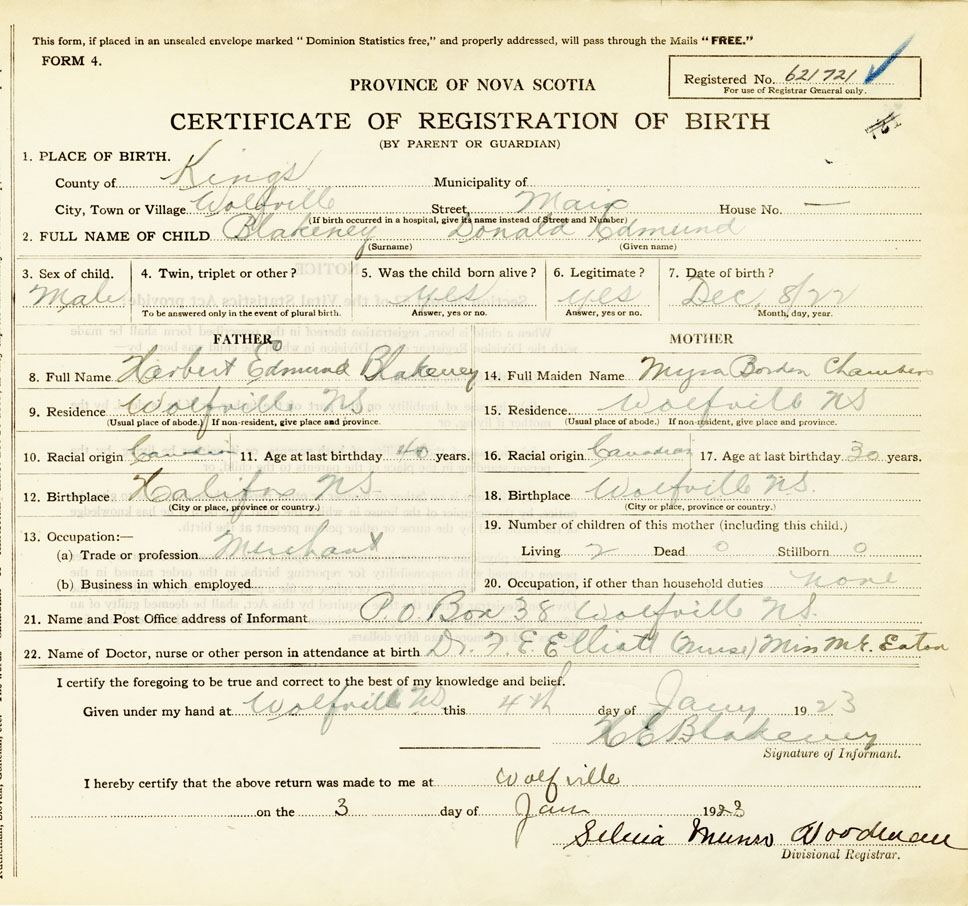 This form, if placed in an unsealed envelope marked “ Dominion Statistics free,” and properly addressed, will pass through the Mails “FREE.”
FORM 4.
Registered No. 621721
For use of Registrar General only.
PROVINCE OF NOVA SCOTIA
CERTIFICATE OF REGISTRATION OF BIRTH
(BY PARENT OR GUARDIAN)
1. PLACE OF BIRTH.
County of Kings Municipality of
City, Town or Village Wolfville Street Main House No. —
(If birth occurred in a hospital, give its name instead of Street and Number)
2. FULL NAME OF CHILD Blakeney Donald Edmund
(Surname) (Given name)
3. Sex of child. 4. Twin, triplet or other? 5. Was the child born alive? 6. Legitimate? 7. Date of birth?
Male yes yes Dec. 8/22
To be answered only in the event of plural birth. Answer, yes or no. Answer, yes or no. Month, day, year.
FATHER MOTHER
8. Full Name Herbert Edmund Blakeney 14. Full Maiden Name Myra Borden Chambers
9. Residence Wolfville NS 15. Residence. Wolfville NS
(Usual place of abode.) If non-resident, give place and province. (Usual place of abode.) If non-resident, give place and province.
10. Racial origin Canadian 11. Age at last birthday 40 years. 16. Racial origin Canadian 17. Age at last birthday 30 years.
12. Birthplace Halifax NS 18. Birthplace Wolfville NS.
(City or place, province or country.) (City or place, province or country.)
13. Occupation:— 19. Number of children of this mother (including this child.)
(a) Trade or profession Merchant Living 2 Dead 0 Stillborn 0
(b) Business in which employed 20. Occupation, if other than household duties none
21. Name and Post Office address of Informant P.O. Box 38 Wolfville N.S.
22. Name of Doctor, nurse or other person in attendance at birth Dr. F. E. Elliott (Nurse) Miss Eaton
I certify the foregoing to be true and correct to the best of my knowledge and belief.
Given under my hand at Wolfville NS this 4th day of Jany 1923
H E Blakeney
Signature of Informant.
I hereby certify that the above return was made to me at Wolfville
on the 3 day of Jan 1923
Selina Munro Woodman
Divisional Registrar.